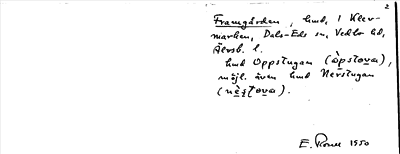 2
Framgården, hmd, 1 Klev-
marken, Dals-Eds sn, Vedbo hd,
Älvsb. l.
hmd Oppstugan (åpstova),
möjl. även hmd Nerstugan
(
E. Rome 1950